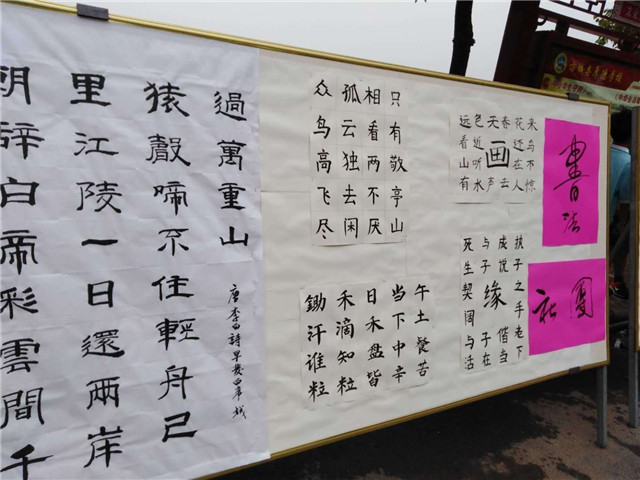 朝辞白帝彩雲間千
里江陵一日還兩岸
猿聲啼不住輕舟已
過萬重山
唐李白詩早發白帝城
众鸟高飞尽
孤云独去闲
相看两不厌
只有敬亭山
锄禾日当午
汗滴禾下土
谁知盘中餐
粒粒皆辛苦
远看山有
色近听水
无声
画
春去
花还在人
来鸟不惊
死生契阔
与子成说
缘
执子之手
与子偕老
活在当下
書法
社團